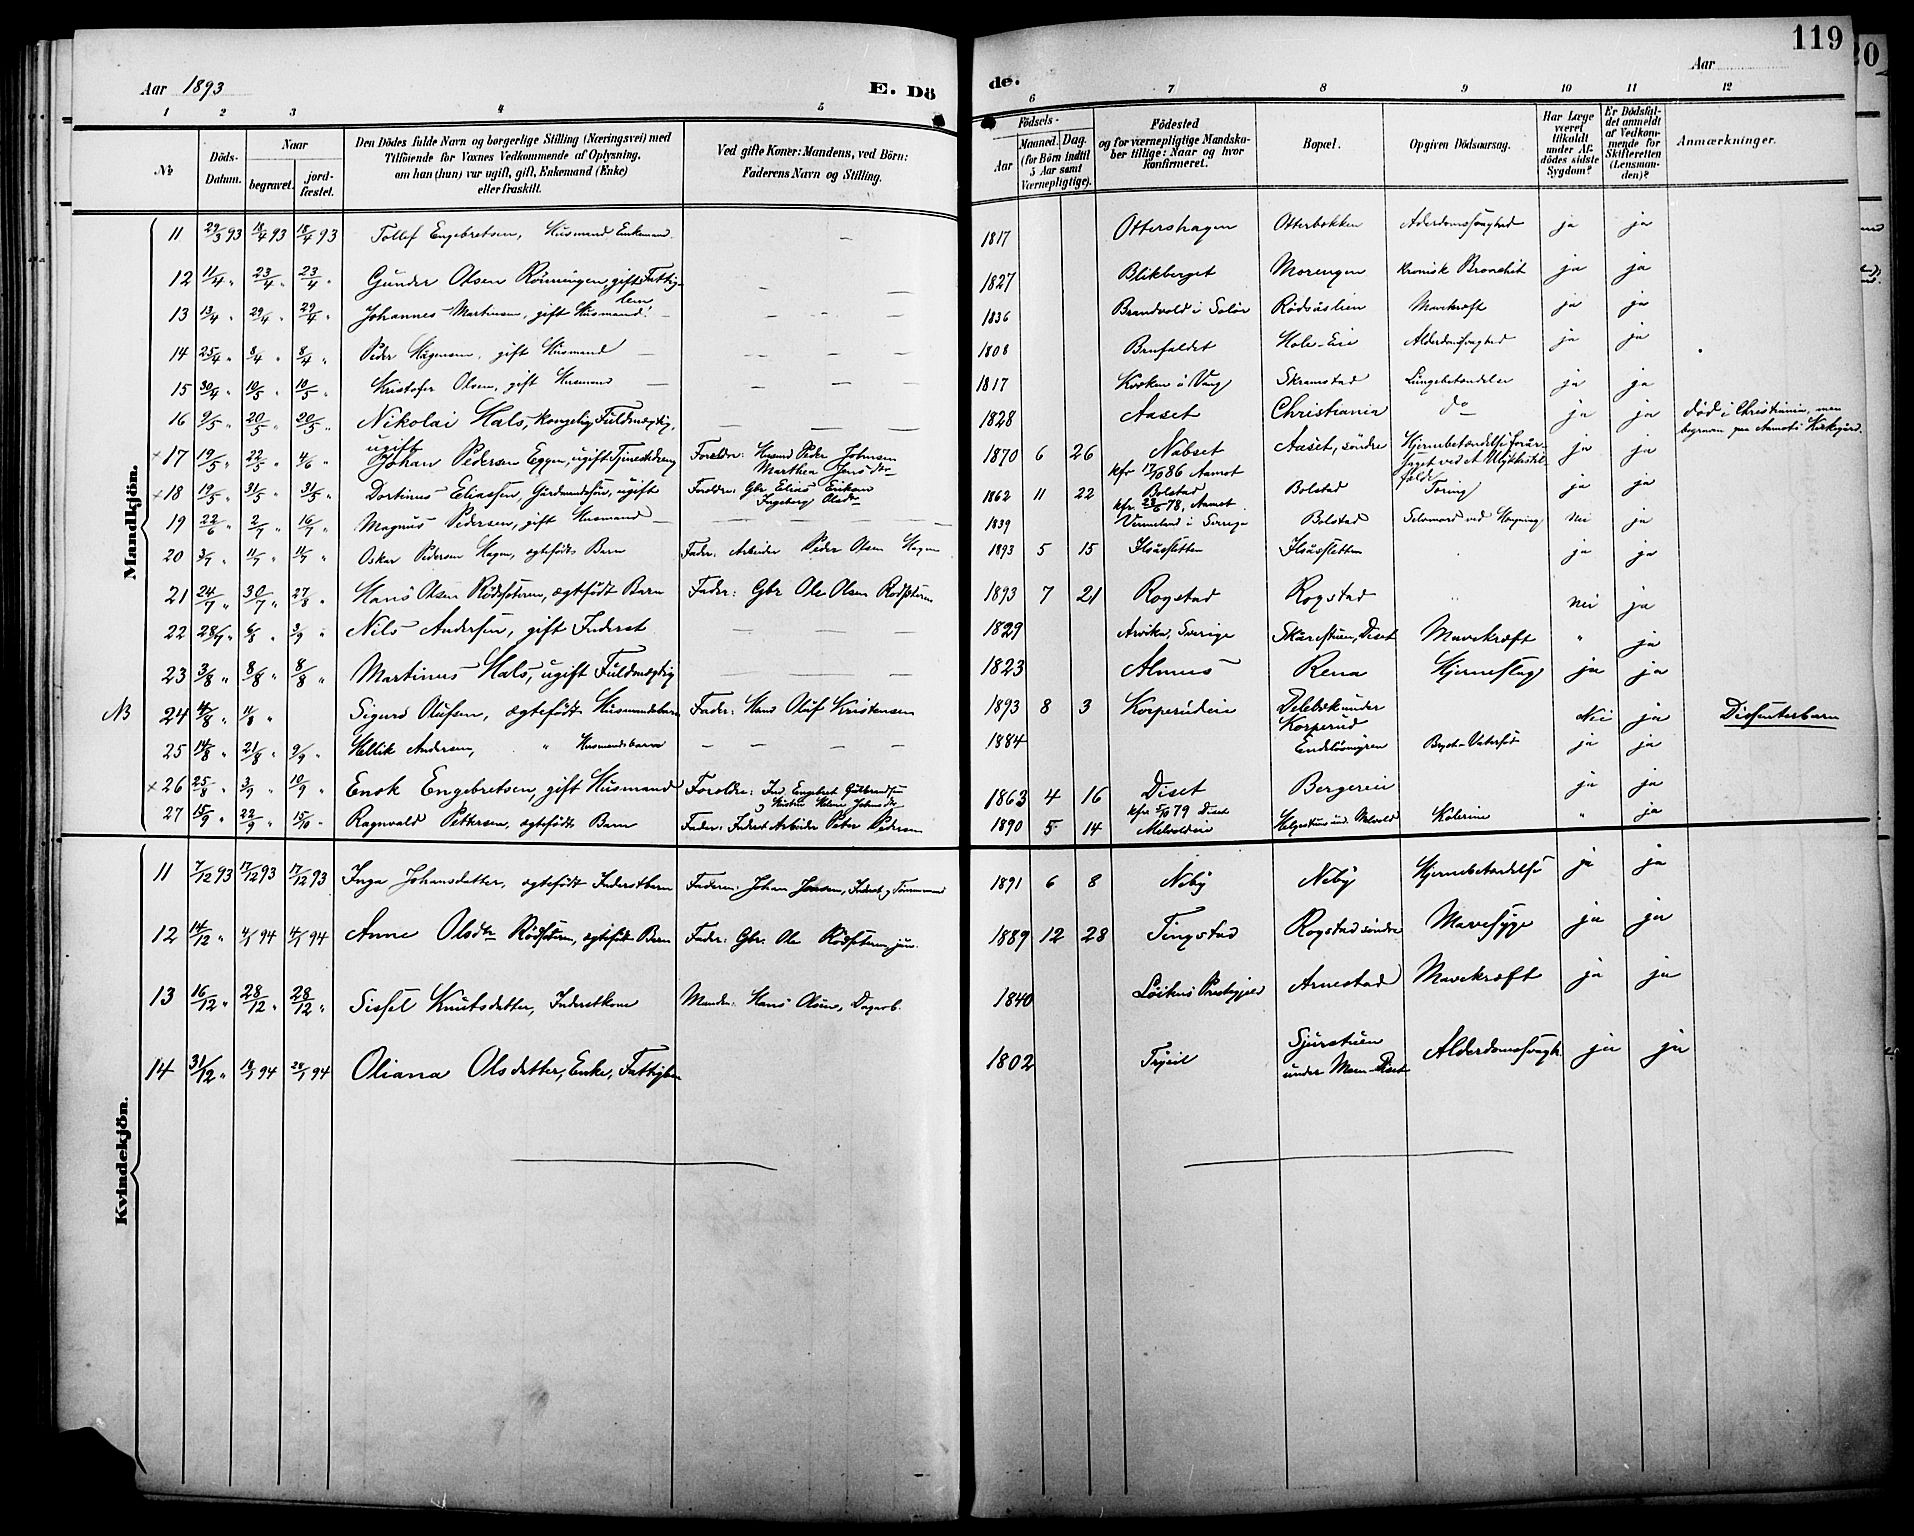 119
Aar 1893
E. Dö
de.
Aar
1 2 3 4 5
6 7 8 9 10 11 12
No
Döds-Datum.
Naar
begravet.
jord-fæstet.
Den Dödes fulde Navn og borgerlige Stilling (Næringsvei) med
Tilföiende for Voxnes Vedkommende af Oplysning,
om han (hun) var ugift, gift, Enkemand (Enke)
eller fraskilt.
Ved gifte Koner: Mandens, ved Börn:
Faderens Navn og Stilling.
Födsels-
Aar
Maaned. Dag.
(for Börn indtil
5 Aar samt
Værnepligtige).
Födested
og for værnepligtige Mandska-
ber tillige: Naar og hvor
konfirmeret.
Bopæl.
Opgiven Dödsaarsag.
Har Læge
været
tilkaldt
under Af-
dödes sidste
Sygdom?
Er Dödsfal-
det anmeldt
af Vedkom-
mende for
Skifteretten
(Lensman-
den)?
Anmærkninger.
Mandkjön.
11 29/3 93 18/4 93 18/4 93 Tollef Engebretsen, Husmand Enkemand — 1817 Ottershagen Otterbækken Alderdomssvaghed ja ja
12 11/4 " 23/4 " 23/4 " Gunder Olsen Rönningen, gift Fattig-
lem — — 1827 Blikberget Morengen kronisk Bronchit ja ja
13 13/4 " 29/4 " 29/4 " Johannes Martinsen, gift Husmand — — — 1836 Brandvold i Solör Rödsåslien Mavekræft ja ja
14 25/4 " 8/4 " 8/4 " Peder Hågensen, gift Husmand — — — 1808 Brufaldet Hole-Eie Alderdomssvaghed ja ja
15 30/4 " 10/5 " 10/5 " Kristofer Olsen, gift Husmand — — — 1817 Kvæken i Vang Skramstad Lungebetændelse ja ja
16 9/5 " 20/5 " 20/5 " Nikolai Hals, kongelig Fuldmægtig,
ugift 1828 Aaset Christiania do ja ja död i Christiania, men
begraven paa Aamots Kirkegård.
× 17 19/5 " 22/5 " 4/6 " Johan Pedersen Eggen, ugift Tjenestedreng Foreldre: Husmd Peder Johnsen
Marthea Jensdtr 1870 6 26 Nabset
kfr 17/10 86 Aamot Aaset, söndre Hjernebetændelse forår-
saget ved et Ulykkestil-
fælde ja ja
× 18 19/5 " 31/5 " 31/5 " Dortinus Eliassen, Gårdmandssön, ugift Foreldre: Gbr Elias Eriksen
Ingeborg Olsdtr 1862 11 22 Bolstad
kfr. 78, Aamot. Bolstad Tæring ja ja
19 22/6 " 2/7 " 16/7 " Magnus Pedersen, gift Husmand — — — — 1839 Vermeland i Sverige Bolstad Selvmord ved Hængning nei ja
20 3/7 " 11/7 " 11/7 " Oskar Pedersen Hagen, ægtefödt Barn Fader: Arbeider Peder Olsen Hagen 1893 5 15 Ilsåsfletten Ilsåsfletten ja ja
21 24/7 " 30/7 " 27/8 " Hans Olsen Rödseteren, ægtefödt Barn Fader: Gbr Ole Olsen Rödseteren 1893 7 21 Rogstad Rogstad nei ja
22 28/7 " 6/8 " 3/9 " Nils Andersen, gift Inderst — — — 1829 Arvika, Sverige Skarestuen, Diset Mavekræft " ja
23 3/8 " 8/8 " 8/8 " Martinus Hals, ugift Fuldmægtig — — — 1823 Almus Rena Hjerneslag ja ja
NB 24 4/8 " 11/8 " Sigurd Olufsen, ægtefödt Husmandsbarn Fader: Hans Oluf Kristensen 1893 8 3 Korperudeie Delebæk under
Korperud Nei ja Dissenterbarn
25 14/8 " 21/8 " 9/9 " Hellik Andersen, " Husmandsbarn — — — 1884 Endelösmyren Bryst-Vatersot ja ja
× 26 25/8 " 3/9 " 10/9 " Enok Engebretsen, gift Husmand Foreldre: Ind. Engebret Gulbrandsen
og Kristine Helene Johnsdtr 1863 4 16 Diset
kfr 5/10 79 Diset Bergereie ja ja
27 15/9 " 22/9 " 15/10 " Ragnvald Pettersen, ægtefödt Barn Fader: Inderst Arbeider Peter Pedersen 1890 5 14 Melvoldeie Helgestuen und. Melvold Kolerine " ja
Kvindekjön.
11 7/12 93 17/12 93 17/12 93 Inga Johansdatter, ægtefödt Inderstbarn Faderen: Johan Jensen, Inderst, Tömmermand 1891 6 8 Neby Neby Hjernebetændelse ja ja
12 14/12 " 4/1 94 4/1 94 Anne Olsdtr Rödseteren, ægtefödt Barn Fader: Gbr. Ole Rödseteren jun. 1889 12 28 Tingstad Rogstad söndre Mavesyge ja ja
13 16/12 " 28/12 " 28/12 " Sissel Knutsdatter, Inderstkone Manden: Hans Olsen, Dagarb. 1840 Löitens Prestegjeld Arnestad Mavekræft ja ja
14 31/12 " 18/1 94 28/1 94 Oliana Olsdatter, Enke, Fattiglem 1802 Trysil Sjurstuen
under Mem-Diset Alderdomssvagh. ja ja